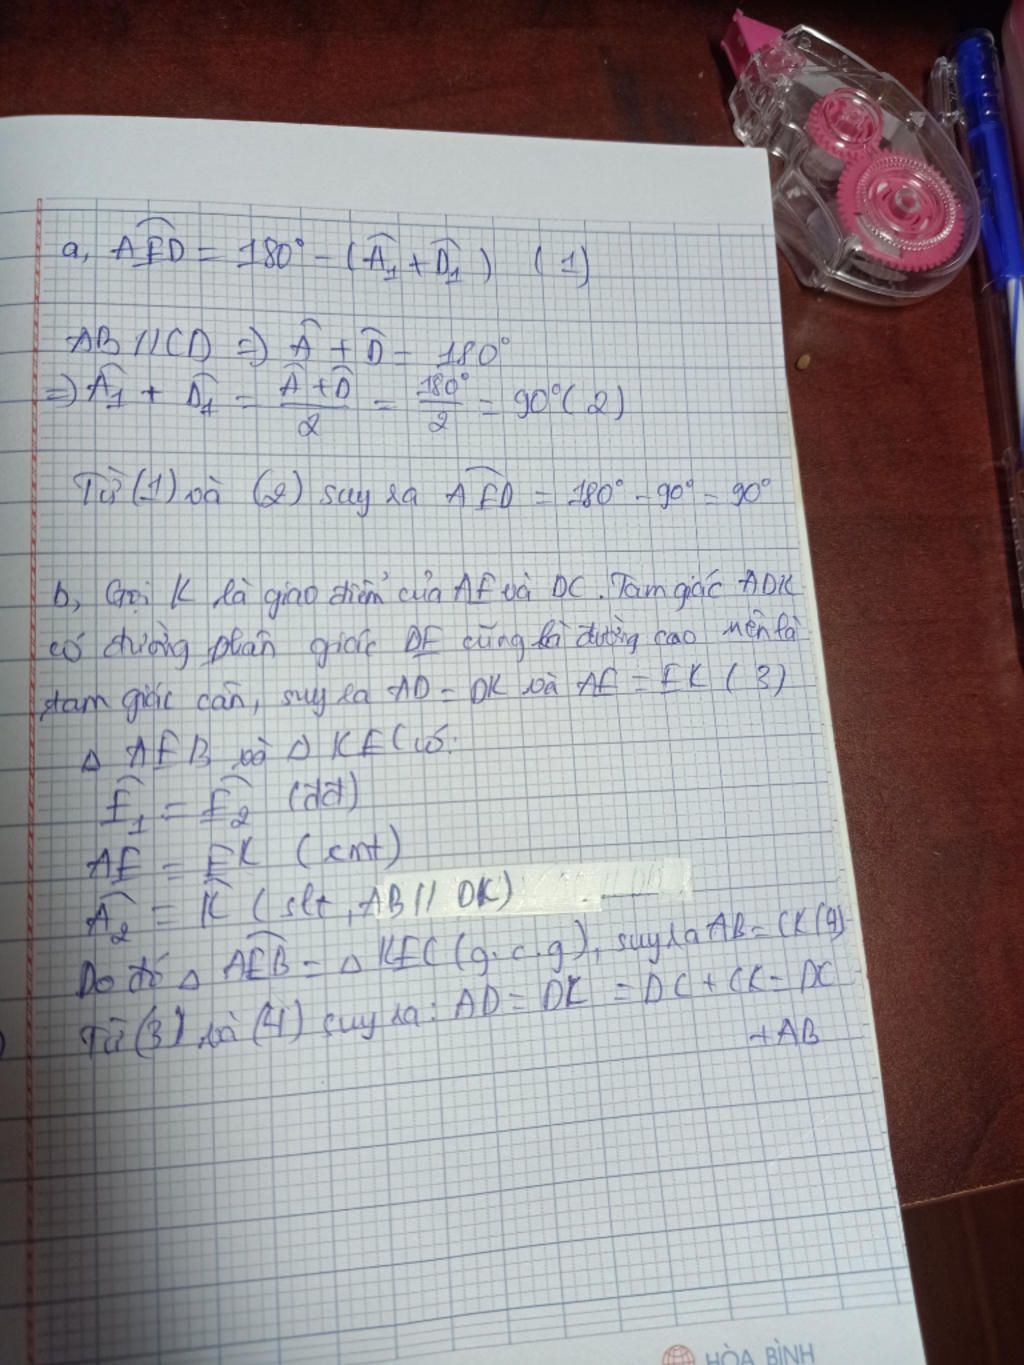 a, AED = 180° - (A₁ + D₁) (1)
AB // CD => A + D = 180°
=> A₁ + D₁ = (A + D)/2 = 180°/2 = 90° (2)
Từ (1) và (2) suy ra AED = 180° - 90° = 90°
b, Gọi K là giao điểm của AE và DC. Tam giác ADK
có đường phân giác DE cũng là đường cao nên là
tam giác cân, suy ra AD = DK và AE = EK (3)
Δ AEB và Δ KEC có:
E₁ = E₂ (đđ)
AE = EK (cmt)
A₂ = K (slt, AB // DK)
Do đó Δ AEB = Δ KEC (g.c.g), suy ra AB = CK (4)
Từ (3) và (4) suy ra: AD = DK = DC + CK = DC
+ AB
HÒA BÌNH